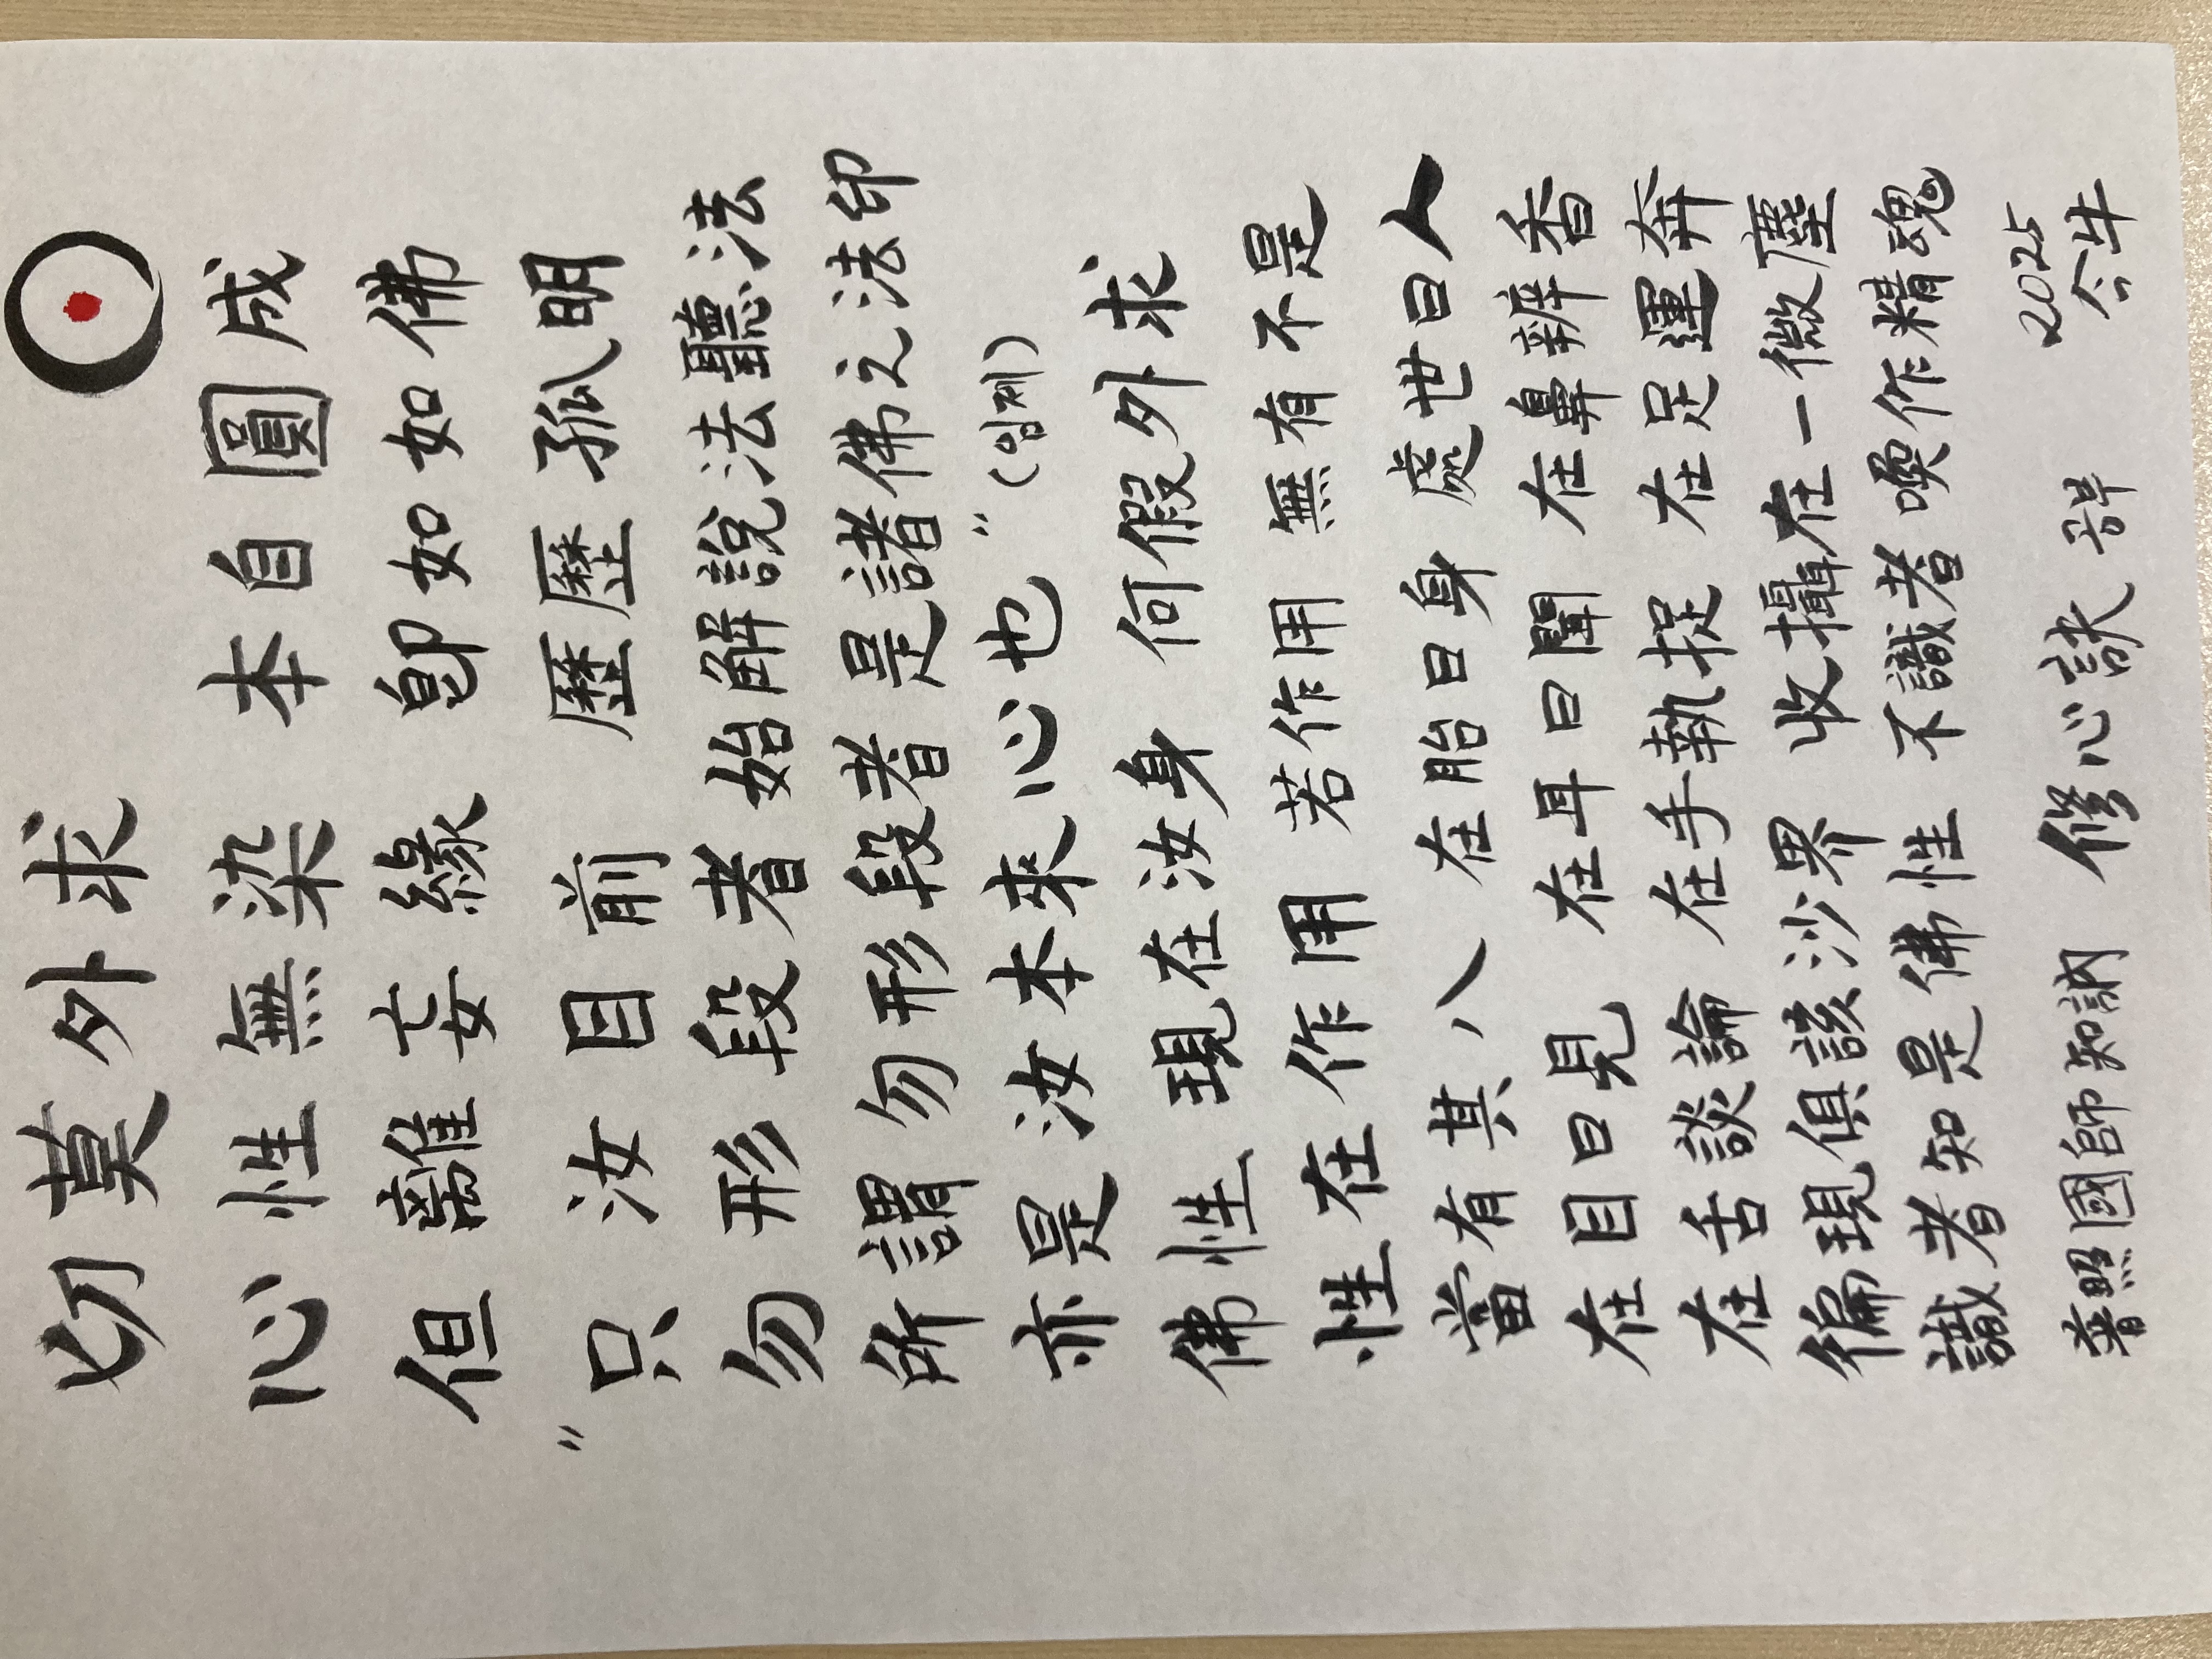 切莫外求
心性無染 本自圓成
但離妄緣 卽如如佛
"只汝目前 歷歷孤明
勿形段者 始解說法聽法
所謂勿形段者 是諸佛之法印
亦是汝本來心也" (임제)
佛性 現在汝身 何假外求
性在作用 若作用 無有不是
當有其八 在胎曰身 處世曰人
在目曰見 在耳曰聞 在鼻辨香
在舌談論 在手執捉 在足運奔
徧現俱該沙界 收攝在一微塵
識者知是佛性 不識者喚作精魂
普照國師知訥 修心訣 공부
2025
今牛